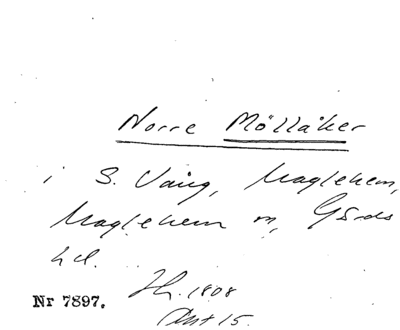 Norre Möllåker
i S. Vång, Maglehem,
Maglehem sn, Gärds
hd.
Nr 7897. Sk. 1808
Akt 15.